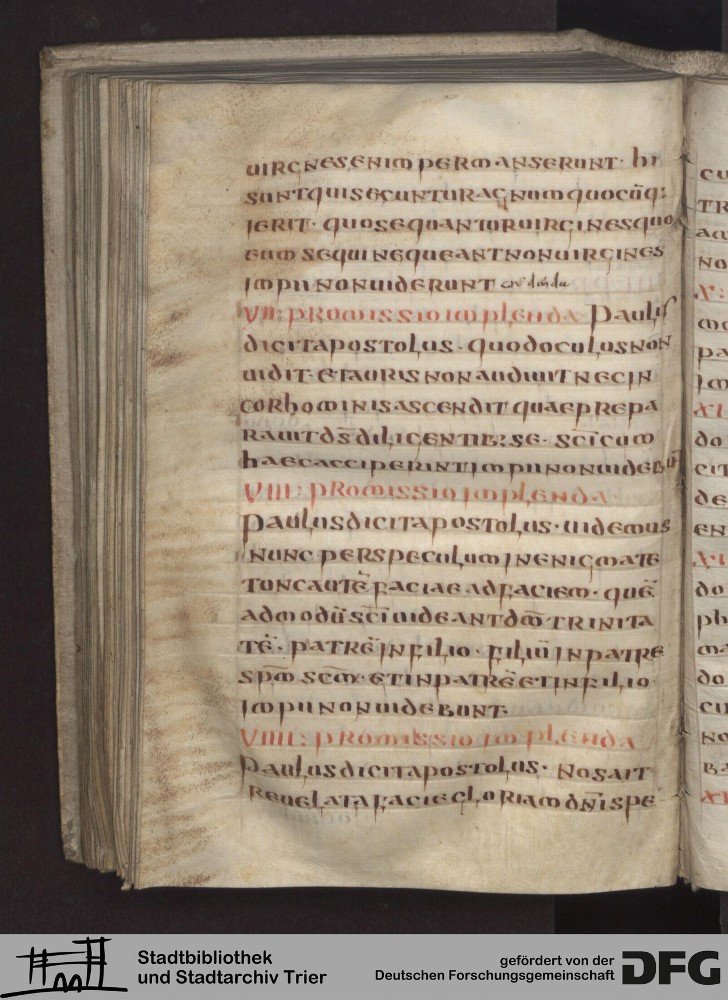 UIRGNESENIM PERMANSERUNT· hI
SUNTQUISEQUNTURAGNUMQUOCŪQ:
IERIT· QUOSEQUANTURUIRGINESQUO
EUM SEQUI NEQUEANTNONUIRGINES
IMPII NONUIDERUNT
VII: PROMISSIO IMPLENDA PAULUS
DICITAPOSTOLUS · QUODOCULUSNON
UIDIT· ETAURISNONAUDIUITNECIN
CORhOMINISASCENDIT QUAEPREPA
RAUITDS̄DILIGENTIB:SE· SC̄ICUM
hAECACCIPERINTIMPIINONUIDEBŪT
VIII: PROMISSIOIMPLENDA·
PAULUSDICITAPOSTOLUS· UIDEMUS
NUNC PERSPECULUMINENIGMATE
TUNCAUTĒ FACIAEADFACIEM· QUĒ
ADMODŪSC̄IUIDEANTDM̄TRINITA
TĒ· PATRĒINFILIO· FILIŪINPATRE
SPM̄ SCM̄· ETINPATRĒETINFILIO·
IMPIINONUIDEBUNT·
VIIII: PROMISSIO IMPLENDA
PAULUSDICITAPOSTOLUS· NOSAIT
REUELATAFACIEGLORIAMDN̄ISPE
CU
TR
NO
X:
PA
IM
XI
DO
CIT
DE
EN
DO
Ph
MA
DO
NO
BA
Stadtbibliothek
und Stadtarchiv Trier
gefördert von der
Deutschen Forschungsgemeinschaft
DFG